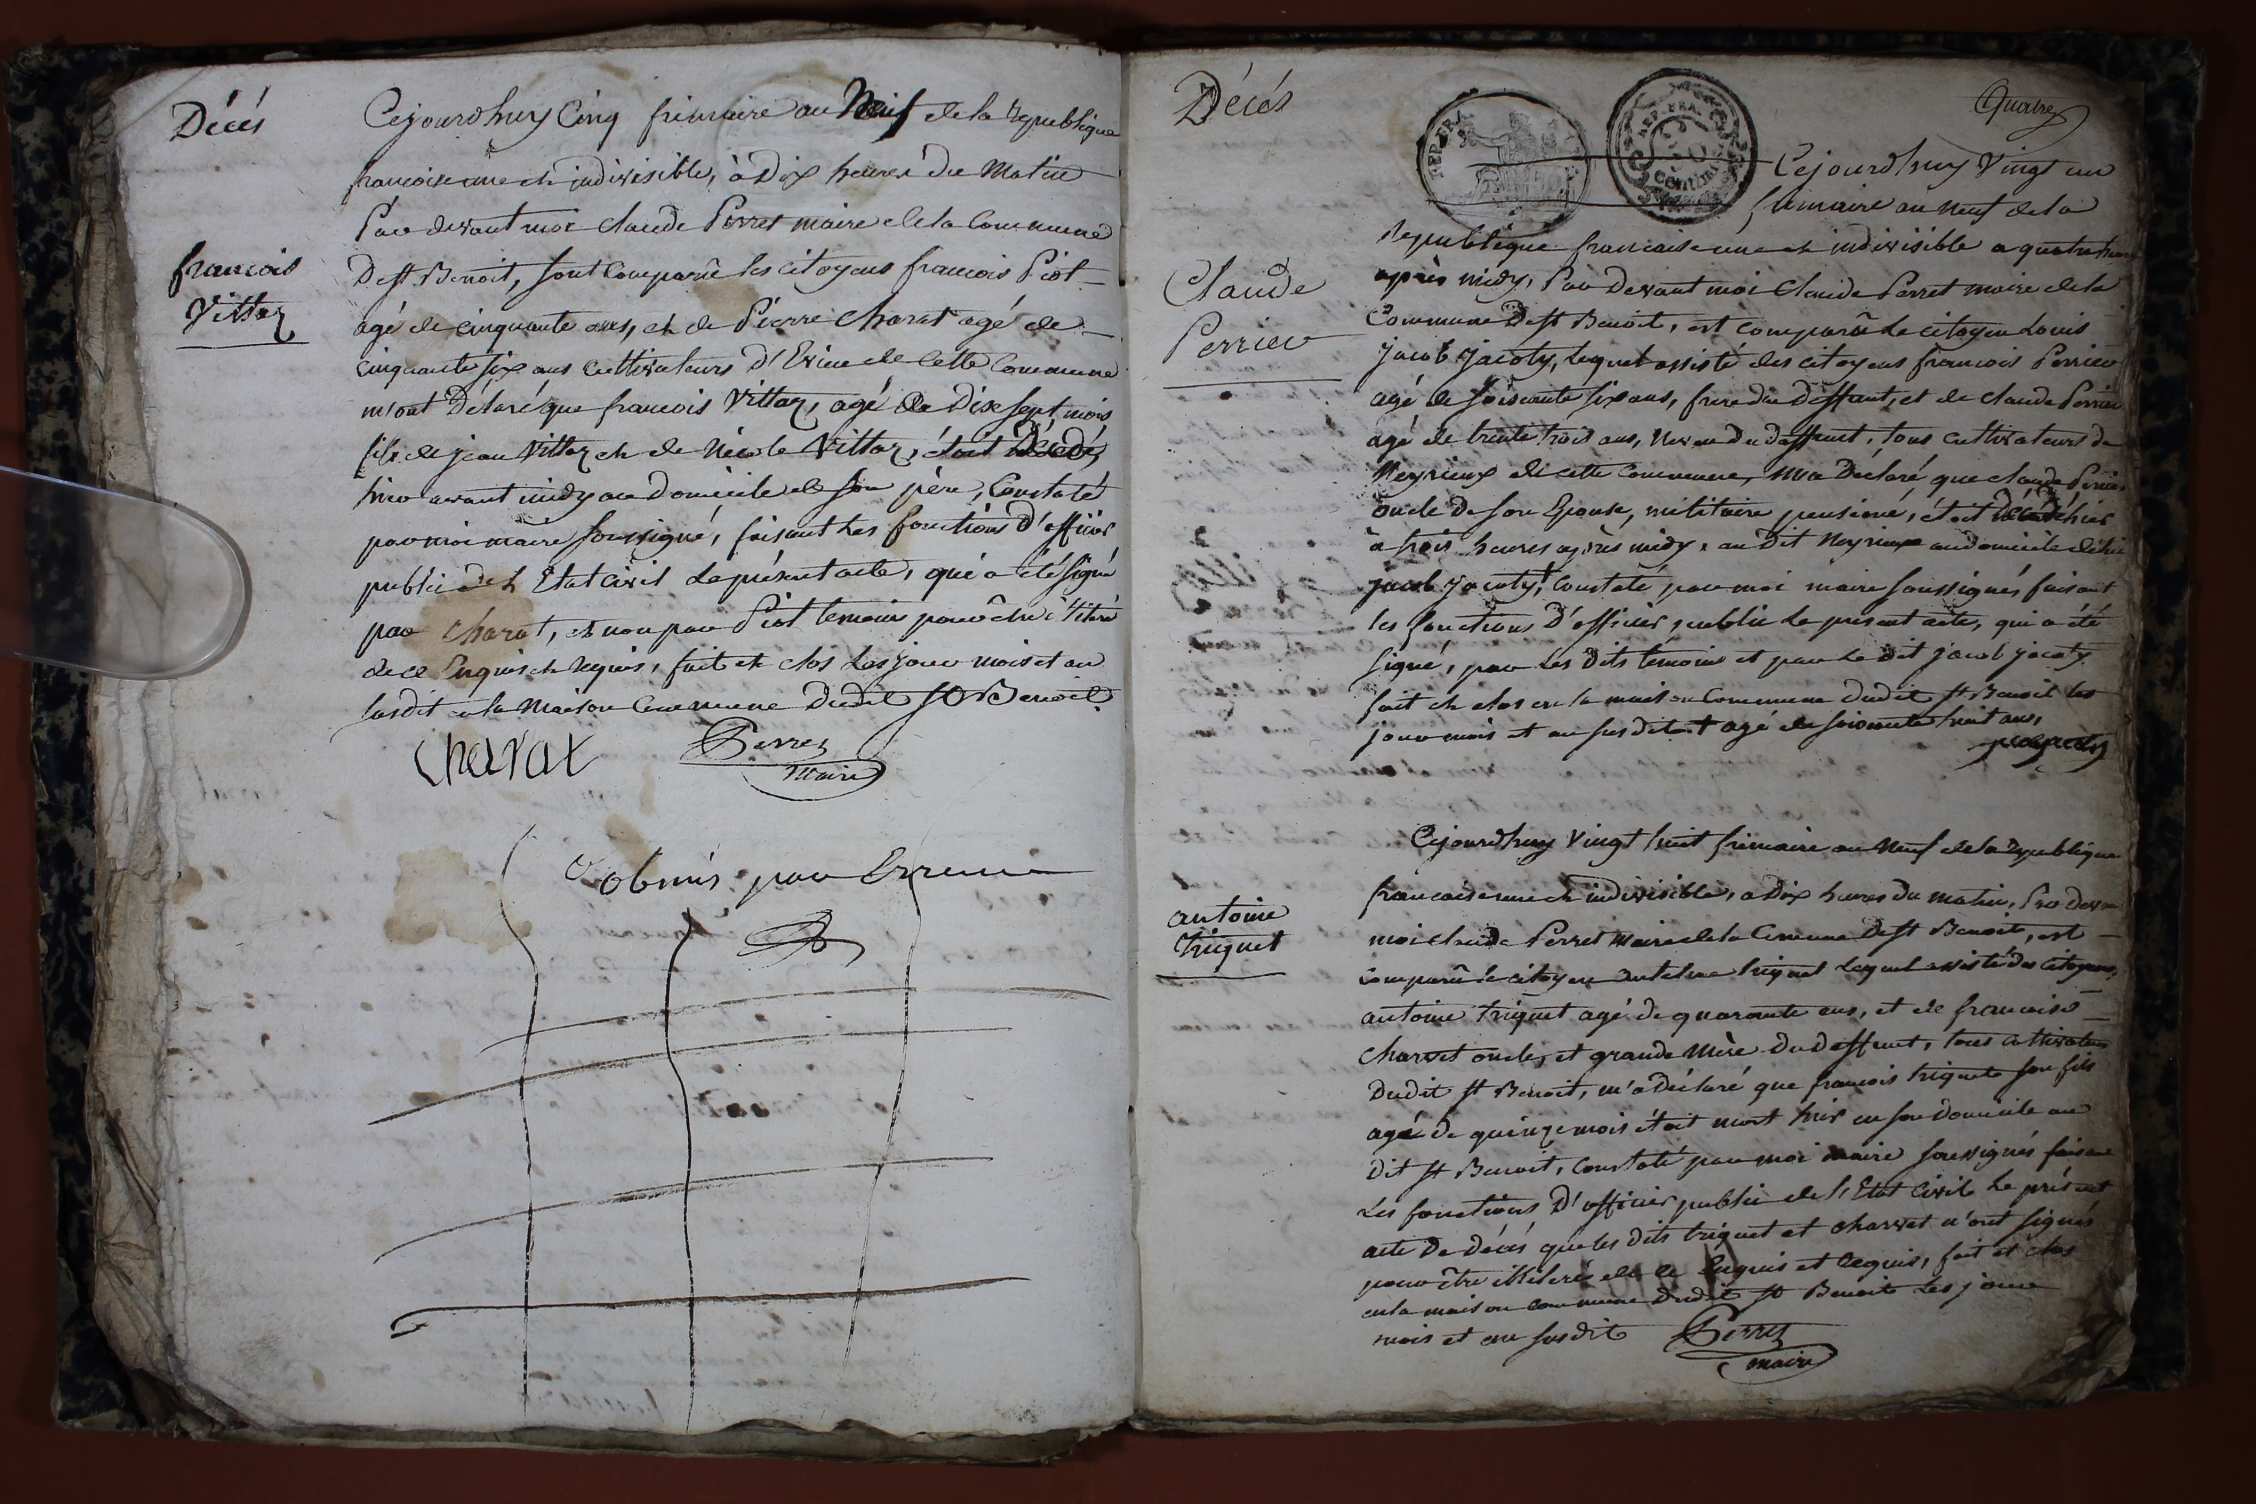 Décés
Cejourdhuy Cinq frimaire an Neuf de la republique
francoise une et indivisible, à Dix heures du Matin
Par devant moi Claude Perret maire de la Commune
De st Benoit, sont Comparûs les citoyens francois Piot
agé de cinquante ans, et de Pierre Charat agé de
cinquante six ans cultivateurs d'Evieu de Cette Commune
m'ont Déclaré que francois Vittoz, agé de Dix sept mois
fils de jean Vittoz et de Nicole Vittoz, étoit Décédé
hier avant midy au Domicile de son père, Constaté
par moi maire soussigné, faisant les fonctions d'officier
public de l'Etat Civil Le présent acte, qui a été signé
par Charat, et non par Piot temoin pour être illitéré
de ce Enquis et requis, fait et clos Les jour mois et an
susdit en la Maison Commune Dudit St Benoit
francois
Vittoz
Charat
Perret
maire
obmis par Erreur
Décés
REP. FRA.
REP. FRA.
CENTIM
Quatre
Cejourdhuy Vingt un
frimaire an neuf de la
republique francaise une et indivisible a quatre heures
après midy, Par Devant moi Claude Perret maire de la
Commune De st Benoit, est comparû Le citoyen Louis
Jacob Jacoty, Lequel assisté des citoyens francois Perrier
agé de soisçante six ans, frere du Deffunt, et de Claude Perrier
agé de trente trois ans, Neveu du Deffunt, tous cultivateurs de
Meyrieux de cette Commune, m'a Déclaré que claude Perrier
oncle De son Epouse, militaire pensioné, étoit Décédé hier
à trois heures après midy, au Dit Meyrieux au domicile
jacob jacoty, † Constaté, par moi maire soussignés faisant
les fonctions D'officier public Le présent acte, qui a été
signé, par Les Dits temoins et par Le Dit jacob jacoty
fait et clos en la maison Commune dudit st Benoit les
jour mois et an susdit † agé de soixante huit ans,
Claude
Perrier
Cejourdhuy Vingt huit frimaire an Neuf de la republique
francaise une et indivisible, a Dix heures du matin, Par devant
moi claude Perret Maire de la Commune De st Benoit, est
comparû le citoyen Antelme triquet Lequel assisté des citoyens
antoine triquet agé de quarante ans, et de francoise
Charvet oncle, et grande Mère du deffunt, tous cultivateurs
Dudit st Benoit, m'a Déclaré que francois triquet son fils
agé de quinze mois étoit mort hier en son Domicile au
Dit st Benoit, Constaté par moi maire soussignés faisant
Les fonctions D'officier public de l'Etat Civil Le présent
acte De Décés que les dits triquet et charvet n'ont signés
pour être illitéré de ce Enquis et requis, fait et clos
en la maison commune Dudit st Benoit Les jour
mois et an susdit
antoine
triquet
Perret
maire